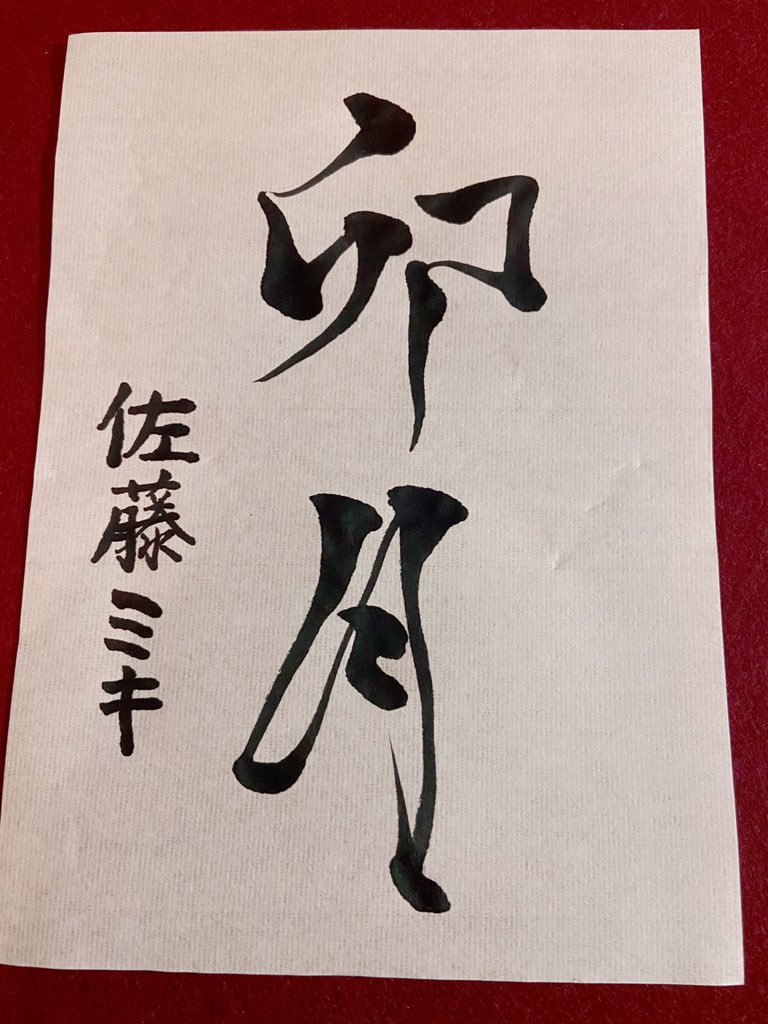 卯月
佐藤ミキ